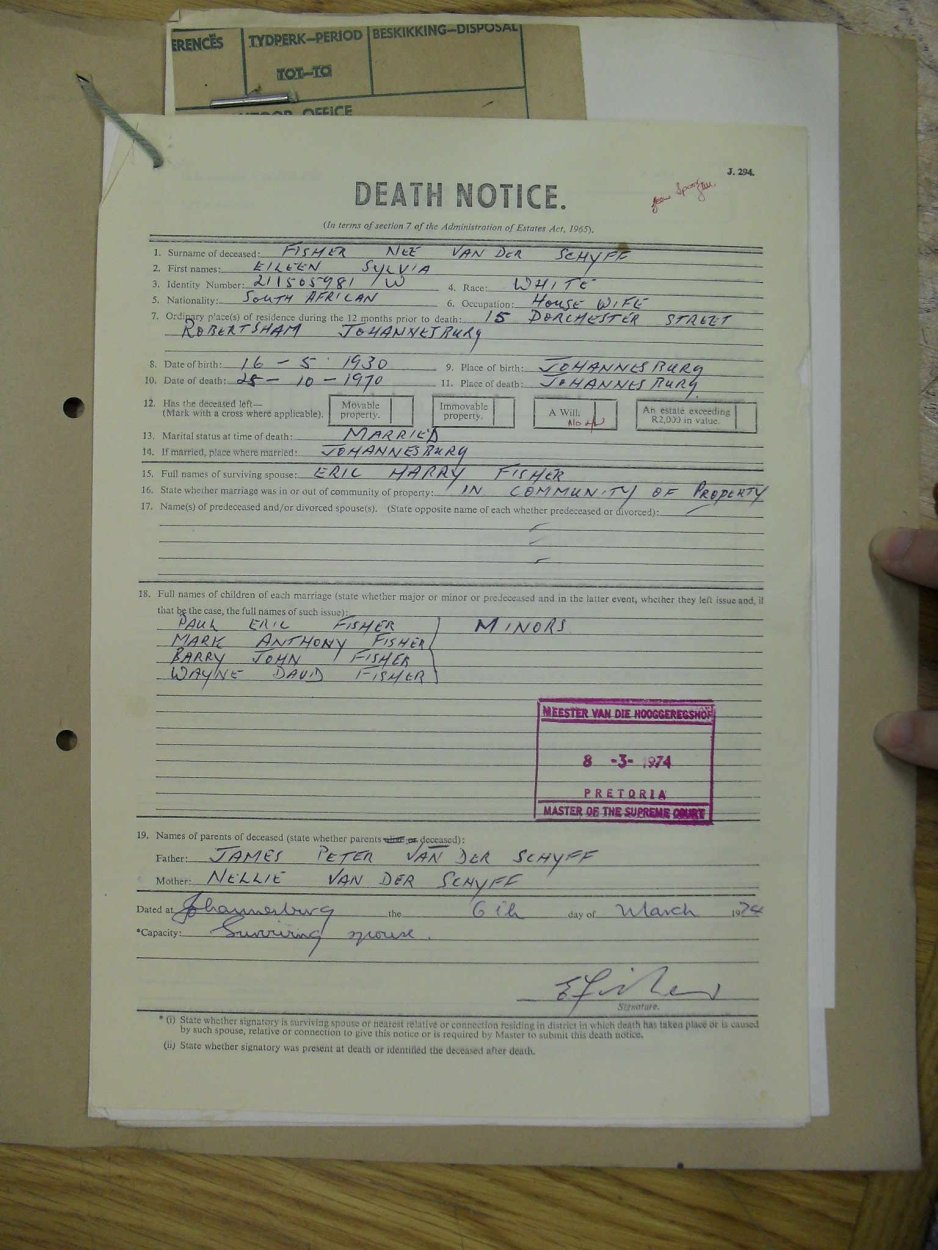 ERENCES
TYDPERK—PERIOD
BESKIKKING—DISPOSAL
TOT—TO
OFFICE
J. 294.
DEATH NOTICE.
(In terms of section 7 of the Administration of Estates Act, 1965).
1. Surname of deceased: FISHER NEE VAN DER SCHYFF
2. First names: EILEEN SYLVIA
3. Identity Number: 211505981 /W 4. Race: WHITE
5. Nationality: SOUTH AFRICAN 6. Occupation: HOUSE WIFE
7. Ordinary place(s) of residence during the 12 months prior to death: 15 DORCHESTER STREET
ROBERTSHAM JOHANNESBURG
8. Date of birth: 16 - 5 - 1930 9. Place of birth: JOHANNESBURG
10. Date of death: 28 - 10 - 1970 11. Place of death: JOHANNESBURG
12. Has the deceased left— (Mark with a cross where applicable).
Movable property.
Immovable property.
A Will.
An estate exceeding R2,000 in value.
13. Marital status at time of death: MARRIED
14. If married, place where married: JOHANNESBURG
15. Full names of surviving spouse: ERIC HARRY FISHER
16. State whether marriage was in or out of community of property: IN COMMUNITY OF PROPERTY
17. Name(s) of predeceased and/or divorced spouse(s). (State opposite name of each whether predeceased or divorced):
18. Full names of children of each marriage (state whether major or minor or predeceased and in the latter event, whether they left issue and, if
that be the case, the full names of such issue):
PAUL ERIC FISHER MINORS
MARK ANTHONY FISHER
BARRY JOHN FISHER
WAYNE DAVID FISHER
MEESTER VAN DIE HOOGGEREGSHOF
8 -3- 1974
PRETORIA
MASTER OF THE SUPREME COURT
19. Names of parents of deceased (state whether parents alive or deceased):
Father: JAMES PETER VAN DER SCHYFF
Mother: NELLIE VAN DER SCHYFF
Dated at Johannesburg the 6th day of March 1974
*Capacity: Surviving spouse.
E Fisher
Signature.
* (i) State whether signatory is surviving spouse or nearest relative or connection residing in district in which death has taken place or is caused
by such spouse, relative or connection to give this notice or is required by Master to submit this death notice.
(ii) State whether signatory was present at death or identified the deceased after death.